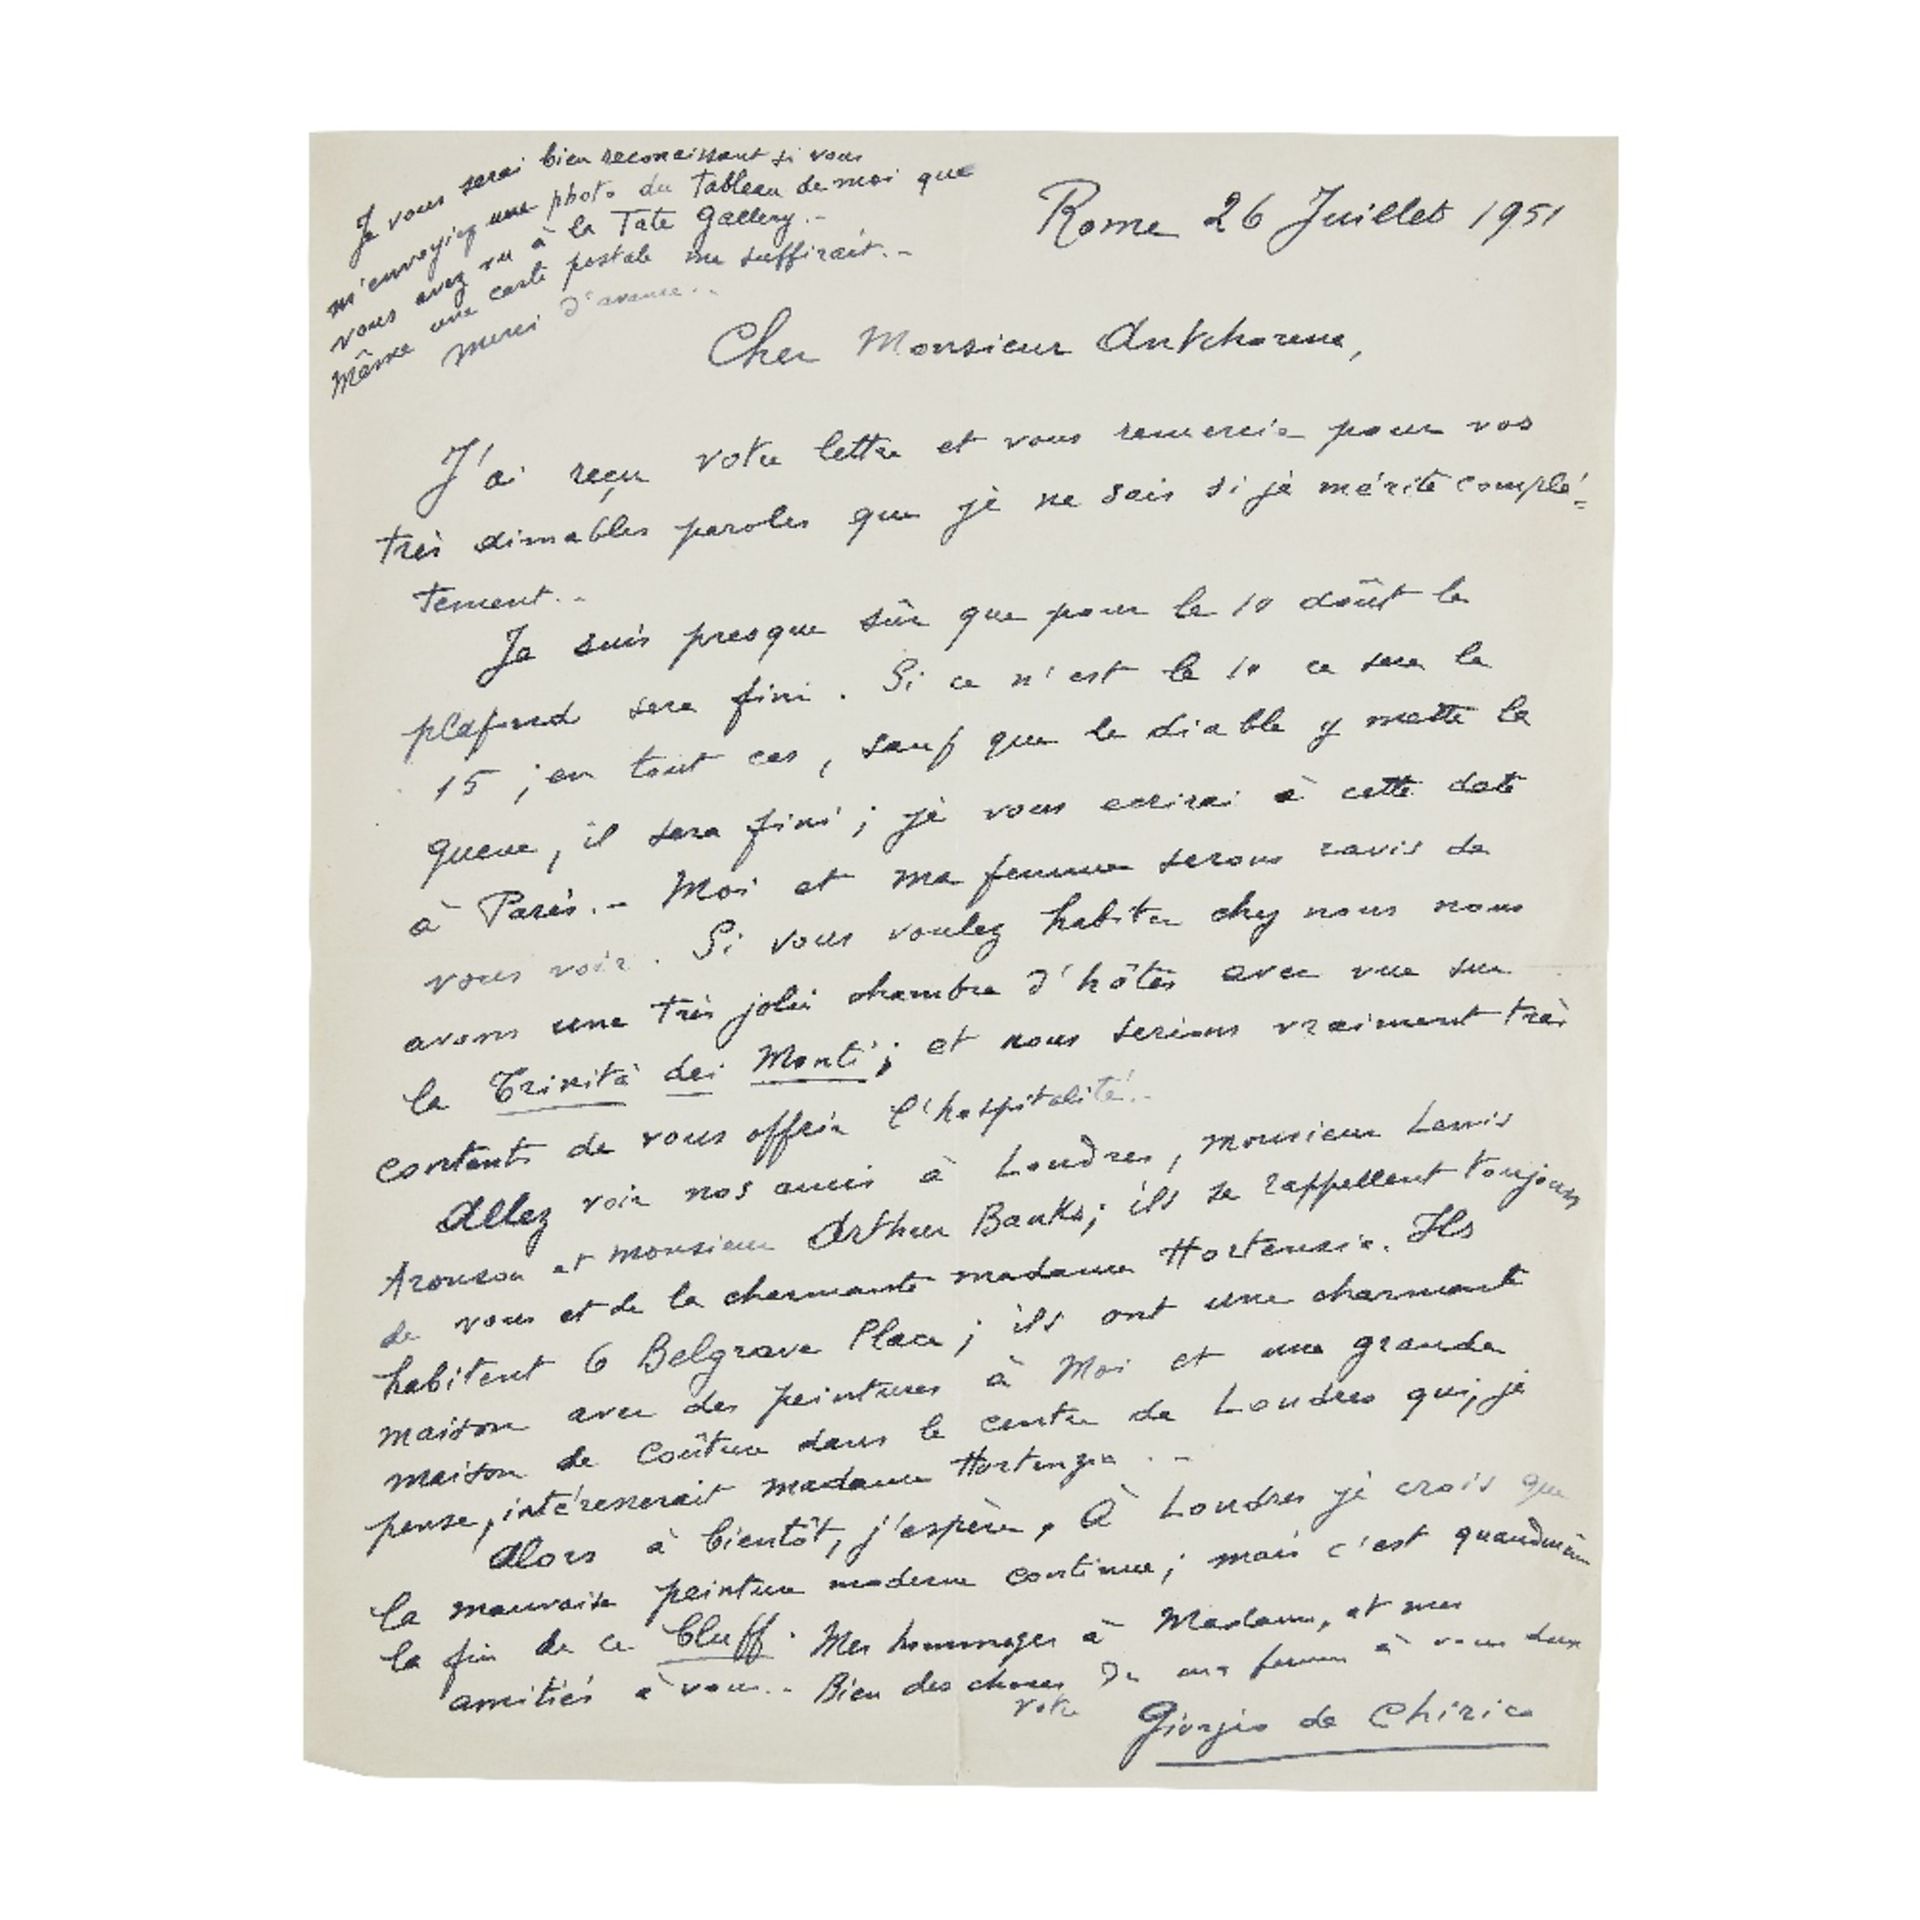 Je vous serai bien reconaissant si vous
m'envoyiez une photo du Tableau de moi que
vous avez vu à la Tate Gallery.-
Même une carte postale me suffirait.-
Merci d'avance.-
Rome 26 Juillet 1951
Cher Monsieur
J'ai reçu votre lettre et vous remercie pour vos
très aimables paroles que je ne sais si je mérite complé=
tement.-
Je suis presque sûr que pour le 10 août le
plafond sera fini. Si ce n'est le 10 ce sera le
15 ; en tout cas, sauf que le diable y mette la
queue, il sera fini ; je vous ecrirai à cette date
à Paris.- Moi et ma femme serons ravis de
vous voir. Si vous voulez habiter chez nous nous
avons une très jolie chambre d'hôtes avec vue sur
la Trinità dei Monti ; et nous serions vraiment très
contents de vous offrir l'hospitalité.-
Allez voir nos amis à Londres, monsieur Lewis
Aronson et monsieur Arthur Banks ; ils se rappellent toujours
de vous et de la charmante madame Hortensia. Ils
habitent 6 Belgrave Place ; ils ont une charmante
maison avec des peintures à Moi et une grande
maison de Coûture dans le centre de Londres qui, je
pense, intéresserait madame Hortenzia.-
Alors à bientôt, j'espère. À Londres je crois que
la mauvaise peinture moderne continue ; mais c'est quandmême
la fin de ce bluff. Mes hommages à Madame, et mes
amitiés à vous.- Bien des choses de ma femme à vous deux
votre
Giorgio de Chirico